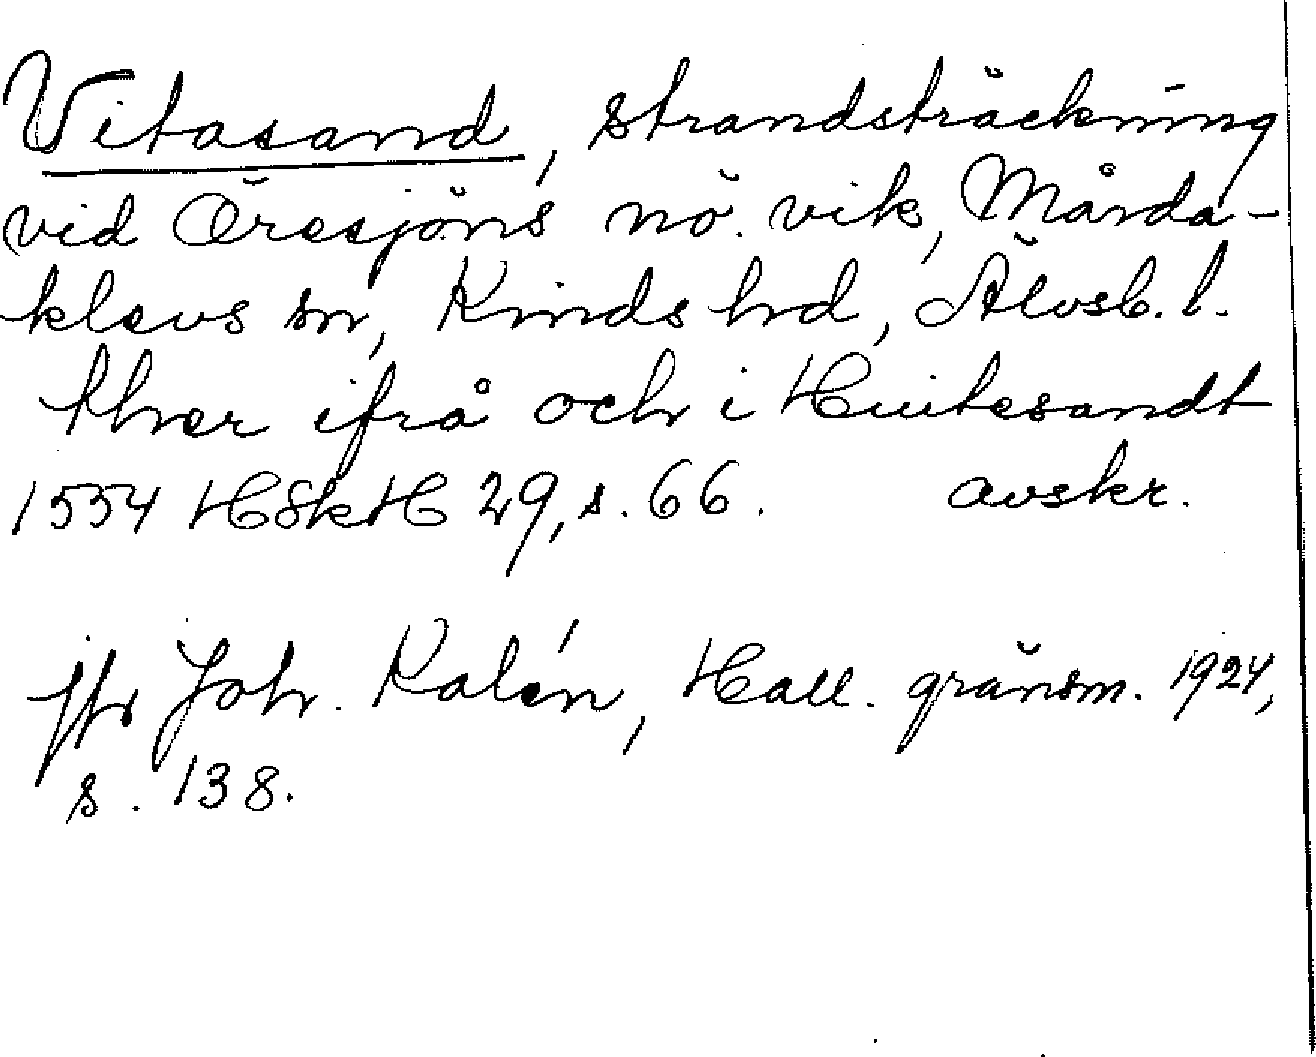 Vitasand, strandsträckning
vid Öresjöns nö. vik, Mårda-
klevs sn, Kinds hd, Älvsb. l.
ther ifrå och i Huitesandt
1554 HSkH 29, s. 66. avskr.
jfr Joh. Kalén, Hall. gränsm. 1924,
s. 138.